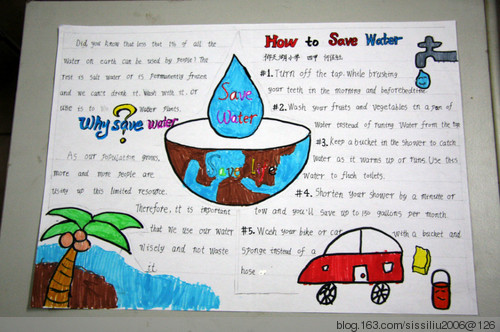 Did you know that less that 1% of all the
water on earth can be used by people? The
rest is salt water or is permanently frozen
and we can't drink it. Wash with it. or
use is to water plants.
Why save water
?
As our population grows,
more and more people are
using up this limited resource.
Therefore, it is important
that we use our water
wisely and not waste
it.
Save
Water
Save Life
How to Save Water
四甲
#1. Turn off the tap. While brushing
your teeth in the morning and before bedtime.
#2. Wash your fruits and vegetables in a pan of
water instead of runing Water from the tap.
#3. Keep a bucket in the shower to catch
Water as it warms up or runs. Use this
water to flush toilets.
#4. Shorten your shower by a minute or
tow and you'll save up to 150 gallons per month.
#5. Wash your bike or car with a bucket and
sponge instead of a
hose.
blog.163.com/sissiliu2006@126